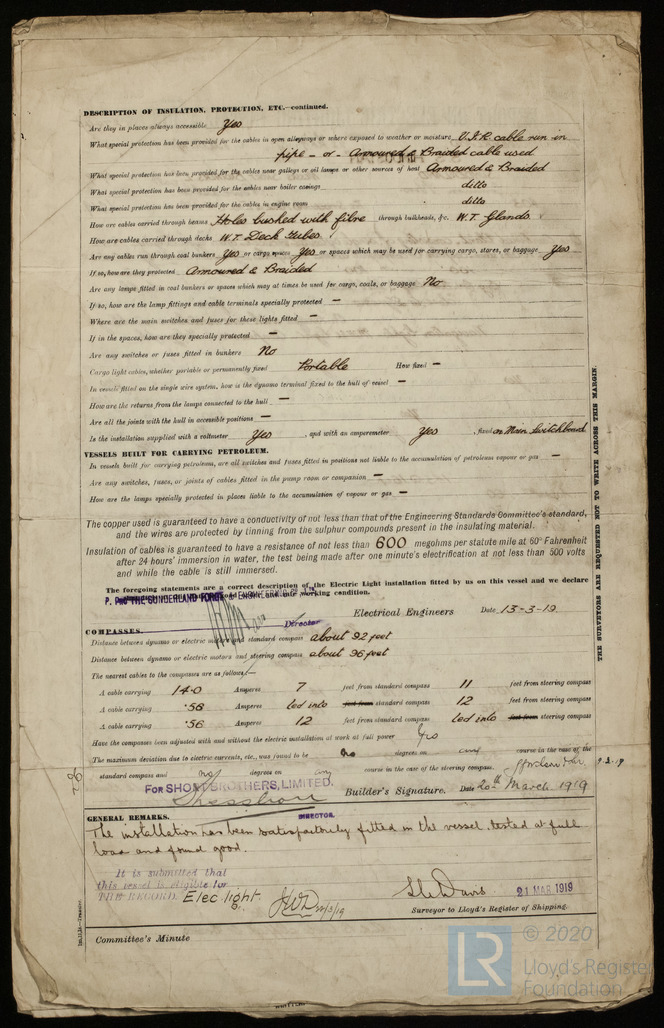 DESCRIPTION OF INSULATION, PROTECTION, ETC.—continued.
Are they in places always accessible Yes
What special protection has been provided for the cables in open alleyways or where exposed to weather or moisture V.I.R cable run in
pipe - or - Armoured & Braided cable used
What special protection has been provided for the cables near galleys or oil lamps or other sources of heat Armoured & Braided
What special protection has been provided for the cables near boiler casings ditto
What special protection has been provided for the cables in engine room ditto
How are cables carried through beams Holes bushed with fibre through bulkheads, &c. W.T. Glands.
How are cables carried through decks W.T. Deck Tubes.
Are any cables run through coal bunkers Yes or cargo spaces Yes or spaces which may be used for carrying cargo, stores, or baggage Yes
If so, how are they protected Armoured & Braided
Are any lamps fitted in coal bunkers or spaces which may at times be used for cargo, coals, or baggage No
If so, how are the lamp fittings and cable terminals specially protected —
Where are the main switches and fuses for these lights fitted —
If in the spaces, how are they specially protected —
Are any switches or fuses fitted in bunkers No
Cargo light cables, whether portable or permanently fixed Portable How fixed —
In vessels fitted on the single wire system, how is the dynamo terminal fixed to the hull of vessel —
How are the returns from the lamps connected to the hull —
Are all the joints with the hull in accessible positions —
Is the installation supplied with a voltmeter Yes , and with an amperemeter Yes , fixed on Main Switchboard
VESSELS BUILT FOR CARRYING PETROLEUM.
In vessels built for carrying petroleum, are all switches and fuses fitted in positions not liable to the accumulation of petroleum vapour or gas —
Are any switches, fuses, or joints of cables fitted in the pump room or companion —
How are the lamps specially protected in places liable to the accumulation of vapour or gas —
The copper used is guaranteed to have a conductivity of not less than that of the Engineering Standards Committee's standard,
and the wires are protected by tinning from the sulphur compounds present in the insulating material.
Insulation of cables is guaranteed to have a resistance of not less than 600 megohms per statute mile at 60° Fahrenheit
after 24 hours' immersion in water, the test being made after one minute's electrification at not less than 500 volts
and while the cable is still immersed.
The foregoing statements are a correct description of the Electric Light installation fitted by us on this vessel and we declare
working condition.
P. Pro THE SUNDERLAND FORGE & ENGINEERING Co. Ltd.
Director Electrical Engineers Date 13-3-19
COMPASSES.
Distance between dynamo or electric motors and standard compass about 92 feet
Distance between dynamo or electric motors and steering compass about 96 feet
The nearest cables to the compasses are as follows:—
A cable carrying 14.0 Amperes 7 feet from standard compass 11 feet from steering compass
A cable carrying .56 Amperes led into feet from standard compass 12 feet from steering compass
A cable carrying .56 Amperes 12 feet from standard compass led into feet from steering compass
Have the compasses been adjusted with and without the electric installation at work at full power Yes
The maximum deviation due to electric currents, etc., was found to be No degrees on any course in the case of the
standard compass and no degrees on any course in the case of the steering compass.
FOR SHORT BROTHERS, LIMITED.
Builder's Signature. Date 20th March 1919
DIRECTOR.
GENERAL REMARKS.
The installation has been satisfactorily fitted in the vessel, tested at full
load and found good.
It is submitted that
this vessel is eligible for
THE RECORD. Elec light.
21 MAR 1919
Surveyor to Lloyd's Register of Shipping.
Committee's Minute
THE SURVEYORS ARE REQUESTED NOT TO WRITE ACROSS THIS MARGIN.
LR © 2020
Lloyd's Register
Foundation